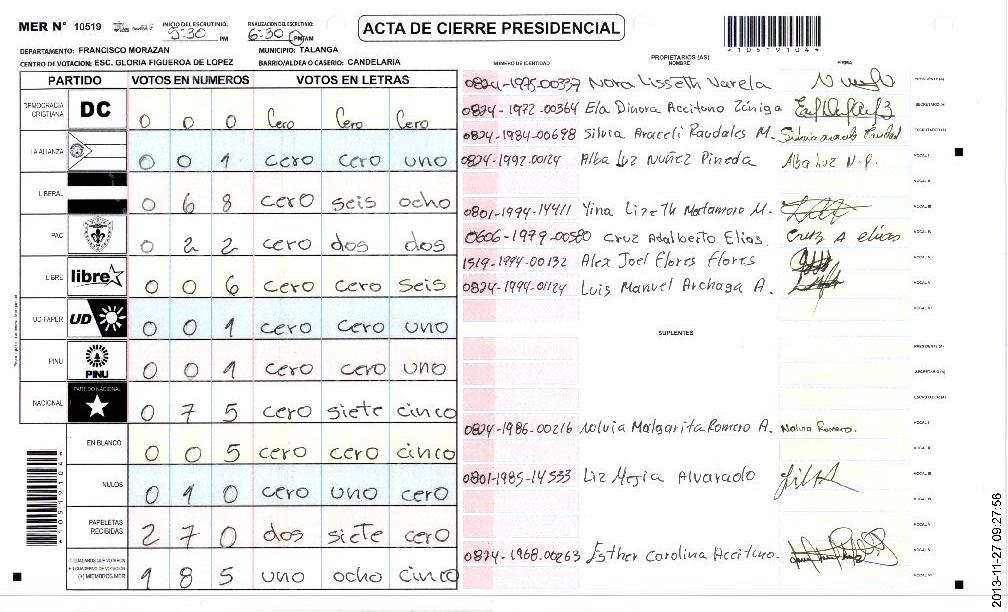 MER N° 10519
INICIO DEL ESCRUTINIO: 5:30 PM
FINALIZACION DEL ESCRUTINIO: 6:30 PM AM
ACTA DE CIERRE PRESIDENCIAL
105191044
DEPARTAMENTO: FRANCISCO MORAZAN MUNICIPIO: TALANGA
CENTRO DE VOTACION: ESC. GLORIA FIGUEROA DE LOPEZ BARRIO/ALDEA O CASERIO: CANDELARIA
NUMERO DE IDENTIDAD PROPIETARIOS (AS) NOMBRE FIRMA
PARTIDO VOTOS EN NUMEROS VOTOS EN LETRAS
DEMOCRACIA CRISTIANA DC 0 0 0 Cero Cero Cero
LA ALIANZA 0 0 1 cero cero uno
LIBERAL 0 6 8 cero seis ocho
PAC 0 2 2 cero dos dos
LIBRE libre 0 0 6 cero cero seis
UD-FAPER UD 0 0 1 cero cero uno
PINU PINU 0 0 1 cero cero uno
NACIONAL PARTIDO NACIONAL 0 7 5 cero siete cinco
EN BLANCO 0 0 5 cero cero cinco
NULOS 0 1 0 cero uno cero
PAPELETAS RECIBIDAS 2 7 0 dos siete cero
(+) MIEMBROS MER 1 8 5 uno ocho cinco
0824-1975-00337 Nora Lisseth Varela PRESIDENTE (A)
0824-1972-00364 Ela Dinora Accituno Zúniga SECRETARIO (A)
0824-1984-00698 Silvia Araceli Raudales M. ESCRUTADOR (A)
0824-1992-00124 Alba Luz Nuñez Pineda Alba Luz N.P. VOCAL I
VOCAL II
0801-1994-14411 Yina Lizeth Matamoro M. VOCAL III
0606-1979-00580 Cruz Adalberto Elias. Cruz A elias VOCAL IV
1519-1994-00132 Alex Joel Flores Flores VOCAL V
0824-1994-01124 Luis Manuel Archaga A.
VOCAL VI
SUPLENTES
PRESIDENTE (A)
SECRETARIO (A)
ESCRUTADOR (A)
0824-1986-00216 Nolvia Malgarita Romero A. Nolvia Romero. VOCAL I
VOCAL II
0801-1985-14533 Liz Mejia Alvarado VOCAL III
VOCAL IV
VOCAL V
0824-1968-00263 Esther Carolina Accituno.
VOCAL VI
2013-11-27 09:27:56